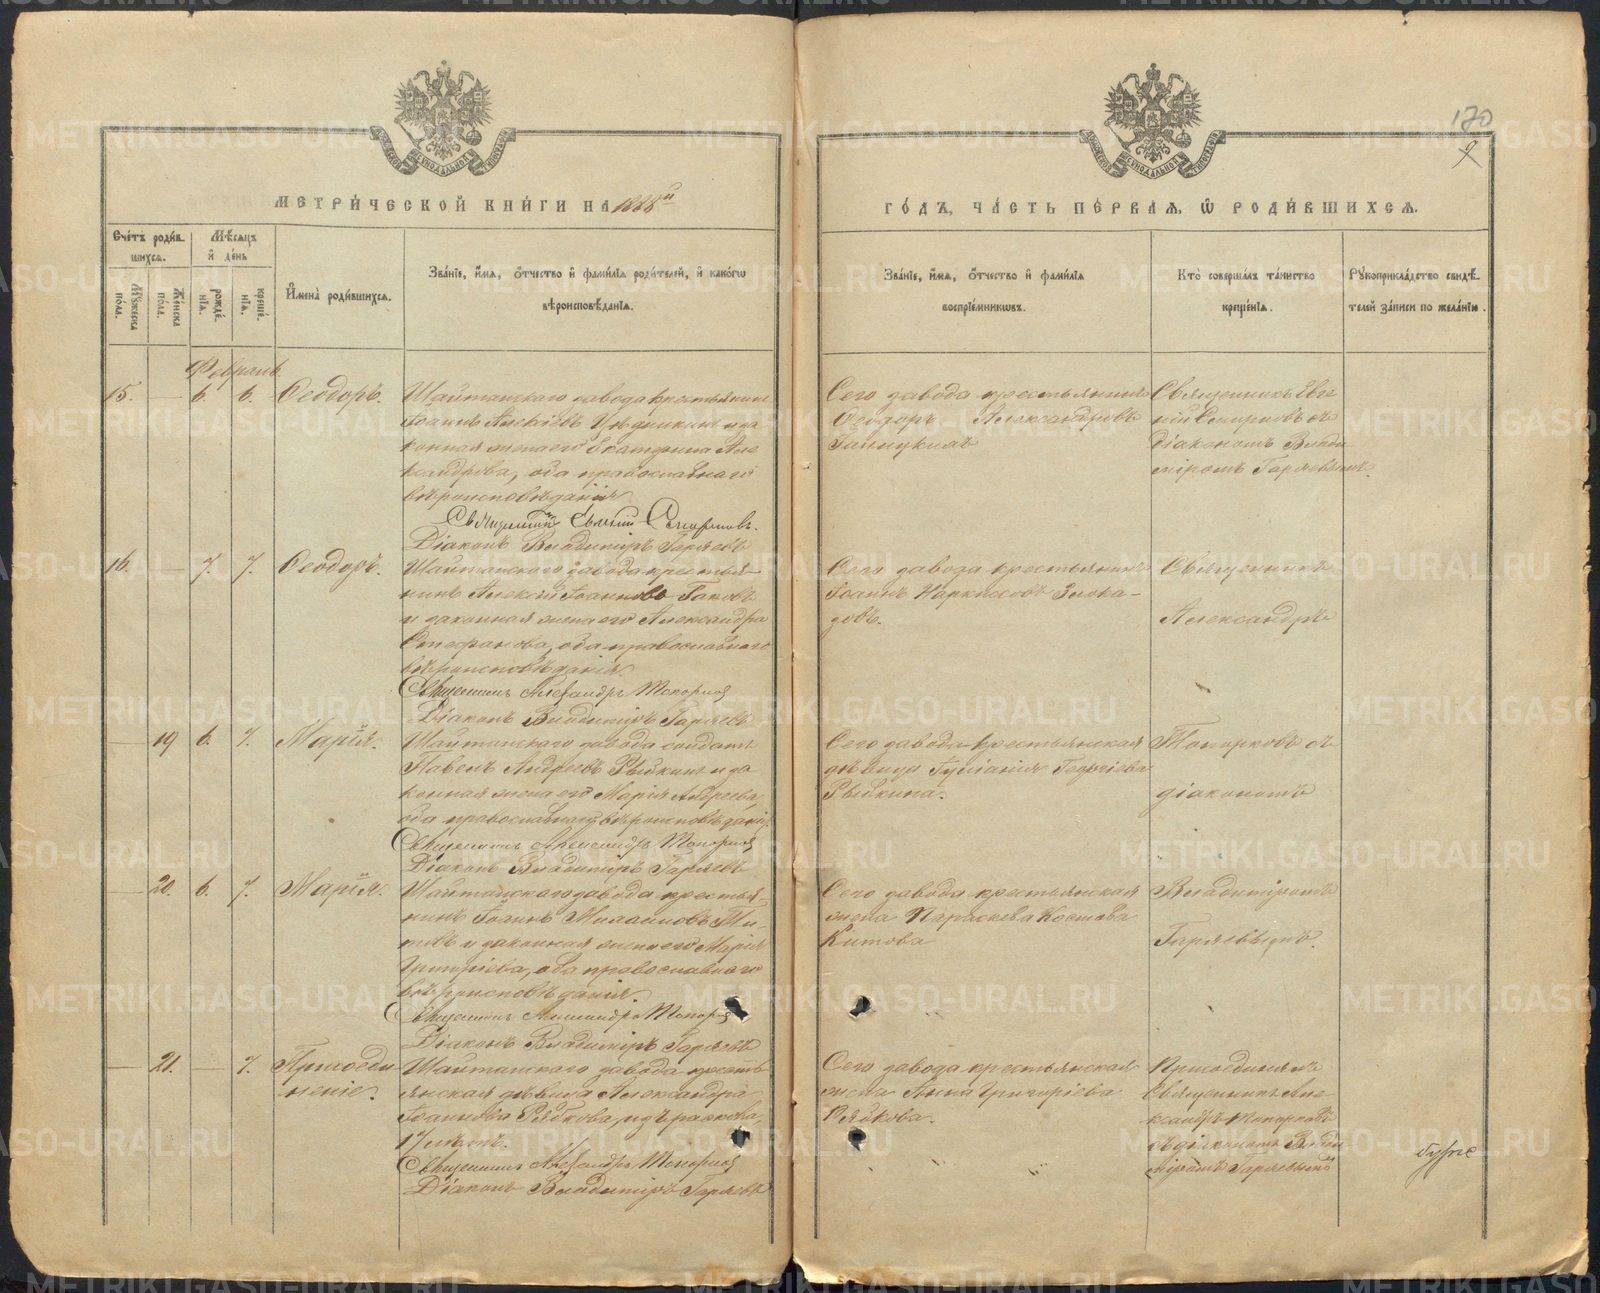 170
9
МЕТРИ́ЧЕСКОЙ КНИ́ГИ НА 1888й
ГО́ДЪ, ЧА́СТЬ ПЕ́РВАЯ, Ѡ РОДИ́ВШИХСЯ.
Сче́тъ роди́в
шихся.
Мѣ́сяцъ
и̂ де́нь
Мꙋ́жеска
пола.
Же́нска
пола.
рожде́
нїѧ.
креще́
нїѧ.
И̂мена̀ роди́вшихся.
Зва́нїе, и̂́мѧ, ѻ̂́тчество и̂ фами́лїѧ роди́телей, и̂ како́гѡ
вѣроисповѣ́данїѧ.
Зва́нїе, и̂́мѧ, ѻ̂́тчество и̂ фами́лїѧ
воспрїе́мникѡвъ.
Кто̀ соверша́лъ та́инство
креще́нїѧ.
Рꙋкоприкла́дство свидѣ́
телей за́писи по жела́нїю.
Февраль
15. — 6. 6. Ѳеодоръ.
Шайтанскаго завода крестьянинъ
Іоаннъ Алексѣевъ
и за
конная жена его Екатерина Але
ксандрова, оба православнаго
вѣроисповѣданія
Священникъ Евгеній Смирновъ.
Діаконъ Владиміръ Гаряевъ
Сего завода крестьянинъ
Ѳеодоръ Александровъ
Священникъ Евге
ній Смирновъ съ
діакономъ Влади
міромъ Гаряевымъ.
16. — 7. 7. Ѳеодоръ.
Шайтанскаго завода крестья-
нинъ Алексѣй Іоанновъ
и законная жена его Александра
Стефанова, оба православнаго
вѣроисповѣданія.
Священникъ Александръ Топорковъ
Діаконъ Владиміръ Гаряевъ
Сего завода крестьянинъ
Іоаннъ Наркиссовъ Злока-
зовъ.
Священникъ
Александръ
— 19 6. 7. Марія.
Шайтанскаго завода солдатъ
Павелъ Андреевъ Рыбкинъ и за
конная жена его Марія Андреева,
оба православнаго вѣроисповѣданія,
Священникъ Александръ Топорковъ
Діаконъ Владиміръ Гаряевъ
Сего завода крестьянская
дѣвица Іуліанія Георгіева
Рыбкина.
Топорковъ съ
діакономъ
— 20. 6. 7. Марія.
Шайтанскаго завода крестья-
нинъ Іоаннъ
и законная жена его Марія
Григоріева, оба православнаго
вѣроисповѣданія.
Священникъ Александръ Топорковъ
Діаконъ Владиміръ Гаряевъ
Сего завода крестьянская
жена Параскева
Китова
Владиміромъ
Гаряевымъ.
— 21. — 7. Присоеди
неніе.
Шайтанскаго завода кресть-
янская дѣвица Александра
Іоаннова Рябкова, изъ раскола,
17 лѣтъ.
Священникъ Александръ Топорковъ
Діаконъ Владиміръ Гаряевъ
Сего завода крестьянская
жена Анна Григоріева
Рябкова.
Присоединялъ
Священникъ Але
ксандръ Топорковъ
съ діакономъ Влади
міромъ Гаряевымъ